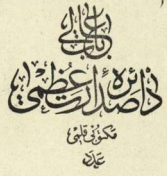 باب عالی
دائرۀ صدارت عظمی
مکتوبی قلمی
عدد